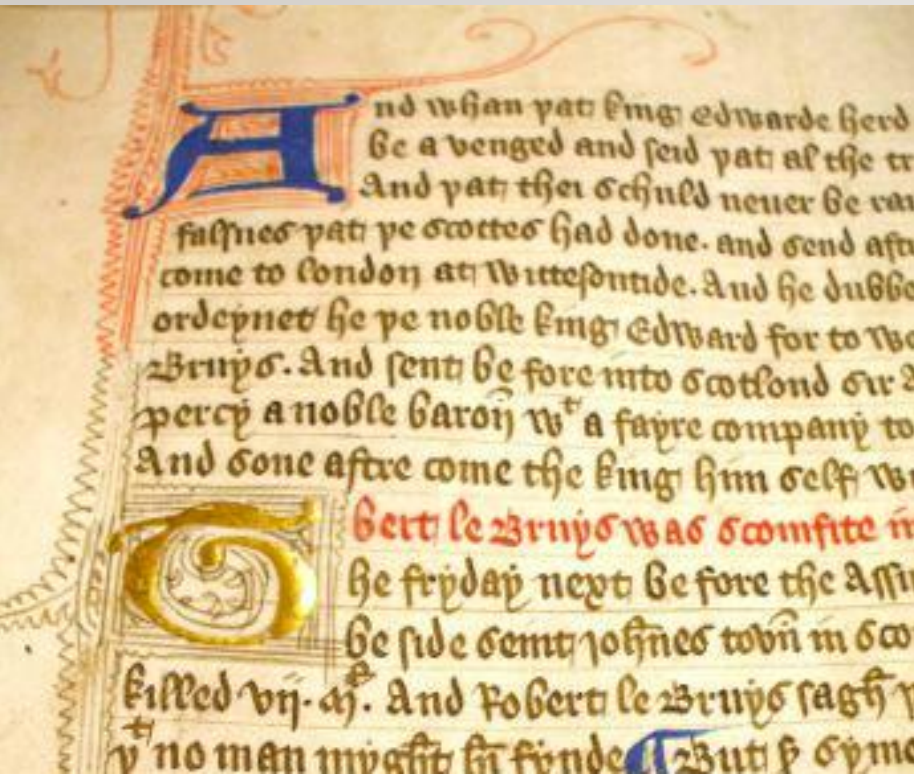 And whan þat king Edwarde herd
be a venged and seid þat al the tr
And þat thei schuld neuer be ran
falsnes þat þe scottes had done. and send aftr
come to london at Wittesontide. And he dubbe
ordeynet he þe noble king Edward for to we
Bruys. And sent be fore into scotlond sir a
percy a noble baron wt a fayre company to
And sone aftre come the king him self wi
bert le Bruys was scomfite in
The fryday next be fore the Assu
be side seint johnes toun in sco
killed vij. Ml. And Robert le Bruys sagh
yt no man myght hī fynde ¶ But þ syme